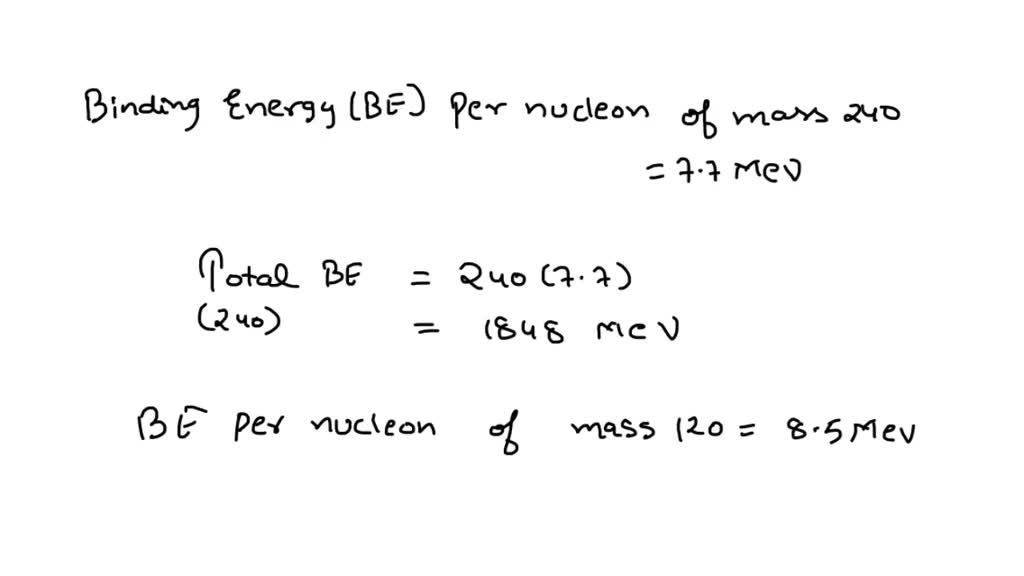 Binding Energy (BE) per nucleon of mass 240
= 7.7 MeV
Total BE = 240 (7.7)
(240) = 1848 MeV
BE per nucleon of mass 120 = 8.5 MeV